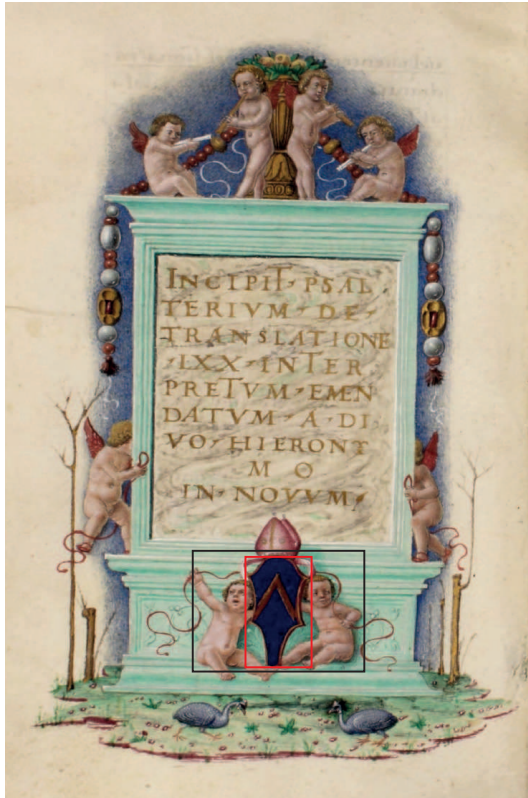 INCIPIT · PSAL
TERIVM · DE ·
TRANSLATIONE
· LXX · INTER
PRETVM · EMEN
DATVM · A · DI
VO · HIERONY
M O
IN · NOVVM ·